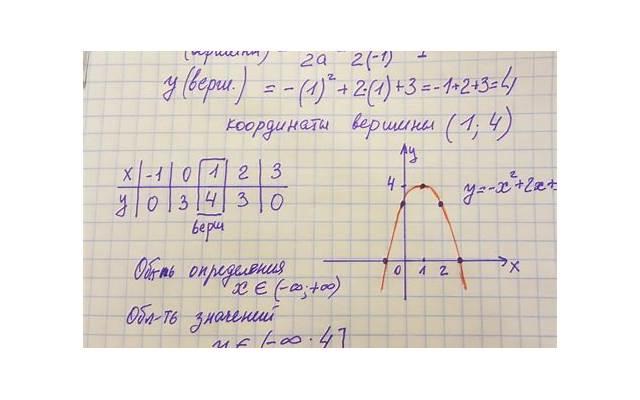 2a 2(-1)
y(верш.) = -(1)² + 2·(1)+3 = -1+2+3=4
координаты вершины (1; 4)
x -1 0 1 2 3
y 0 3 4 3 0
верш
Обл-ть определения
x ∈ (-∞;+∞)
Обл-ть значений
y ∈ (-∞ ; 4]
y
4
y=-x²+2x+
0 1 2 x